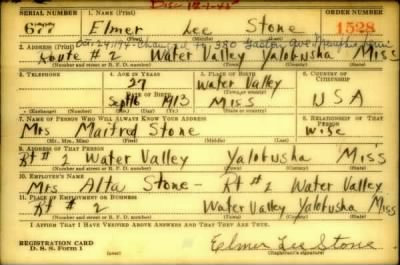 Dis- 12-1-45
SERIAL NUMBER 1. NAME (Print) ORDER NUMBER
677 Elmer Lee Stone 1528
(First) (Middle) (Last)
2. ADDRESS (Print)
Route # 2 Water Valley Yalobusha Miss
(Number and street or R. F. D. number) (Town) (County) (State)
3. TELEPHONE 4. AGE IN YEARS 5. PLACE OF BIRTH 6. COUNTRY OF CITIZENSHIP
27 Water Valley
(Town or county)
DATE OF BIRTH
Sept 16 1913 Miss USA
(Exchange) (Number) (Mo.) (Day) (Yr.) (State or country)
7. NAME OF PERSON WHO WILL ALWAYS KNOW YOUR ADDRESS 8. RELATIONSHIP OF THAT PERSON
Mrs Maitred Stone wise
(Mr., Mrs., Miss) (First) (Middle) (Last)
9. ADDRESS OF THAT PERSON
Rt # 2 Water Valley Yalobusha Miss
(Number and street or R. F. D. number) (Town) (County) (State)
10. EMPLOYER'S NAME
Mrs Alta Stone - Rt # 2 Water Valley
11. PLACE OF EMPLOYMENT OR BUSINESS
Rt # 2 Water Valley Yalobusha Miss
(Number and street or R. F. D. number) (Town) (County) (State)
I AFFIRM THAT I HAVE VERIFIED ABOVE ANSWERS AND THAT THEY ARE TRUE.
REGISTRATION CARD
D. S. S. Form 1 (over)
Elmer Lee Stone
(Registrant's signature)